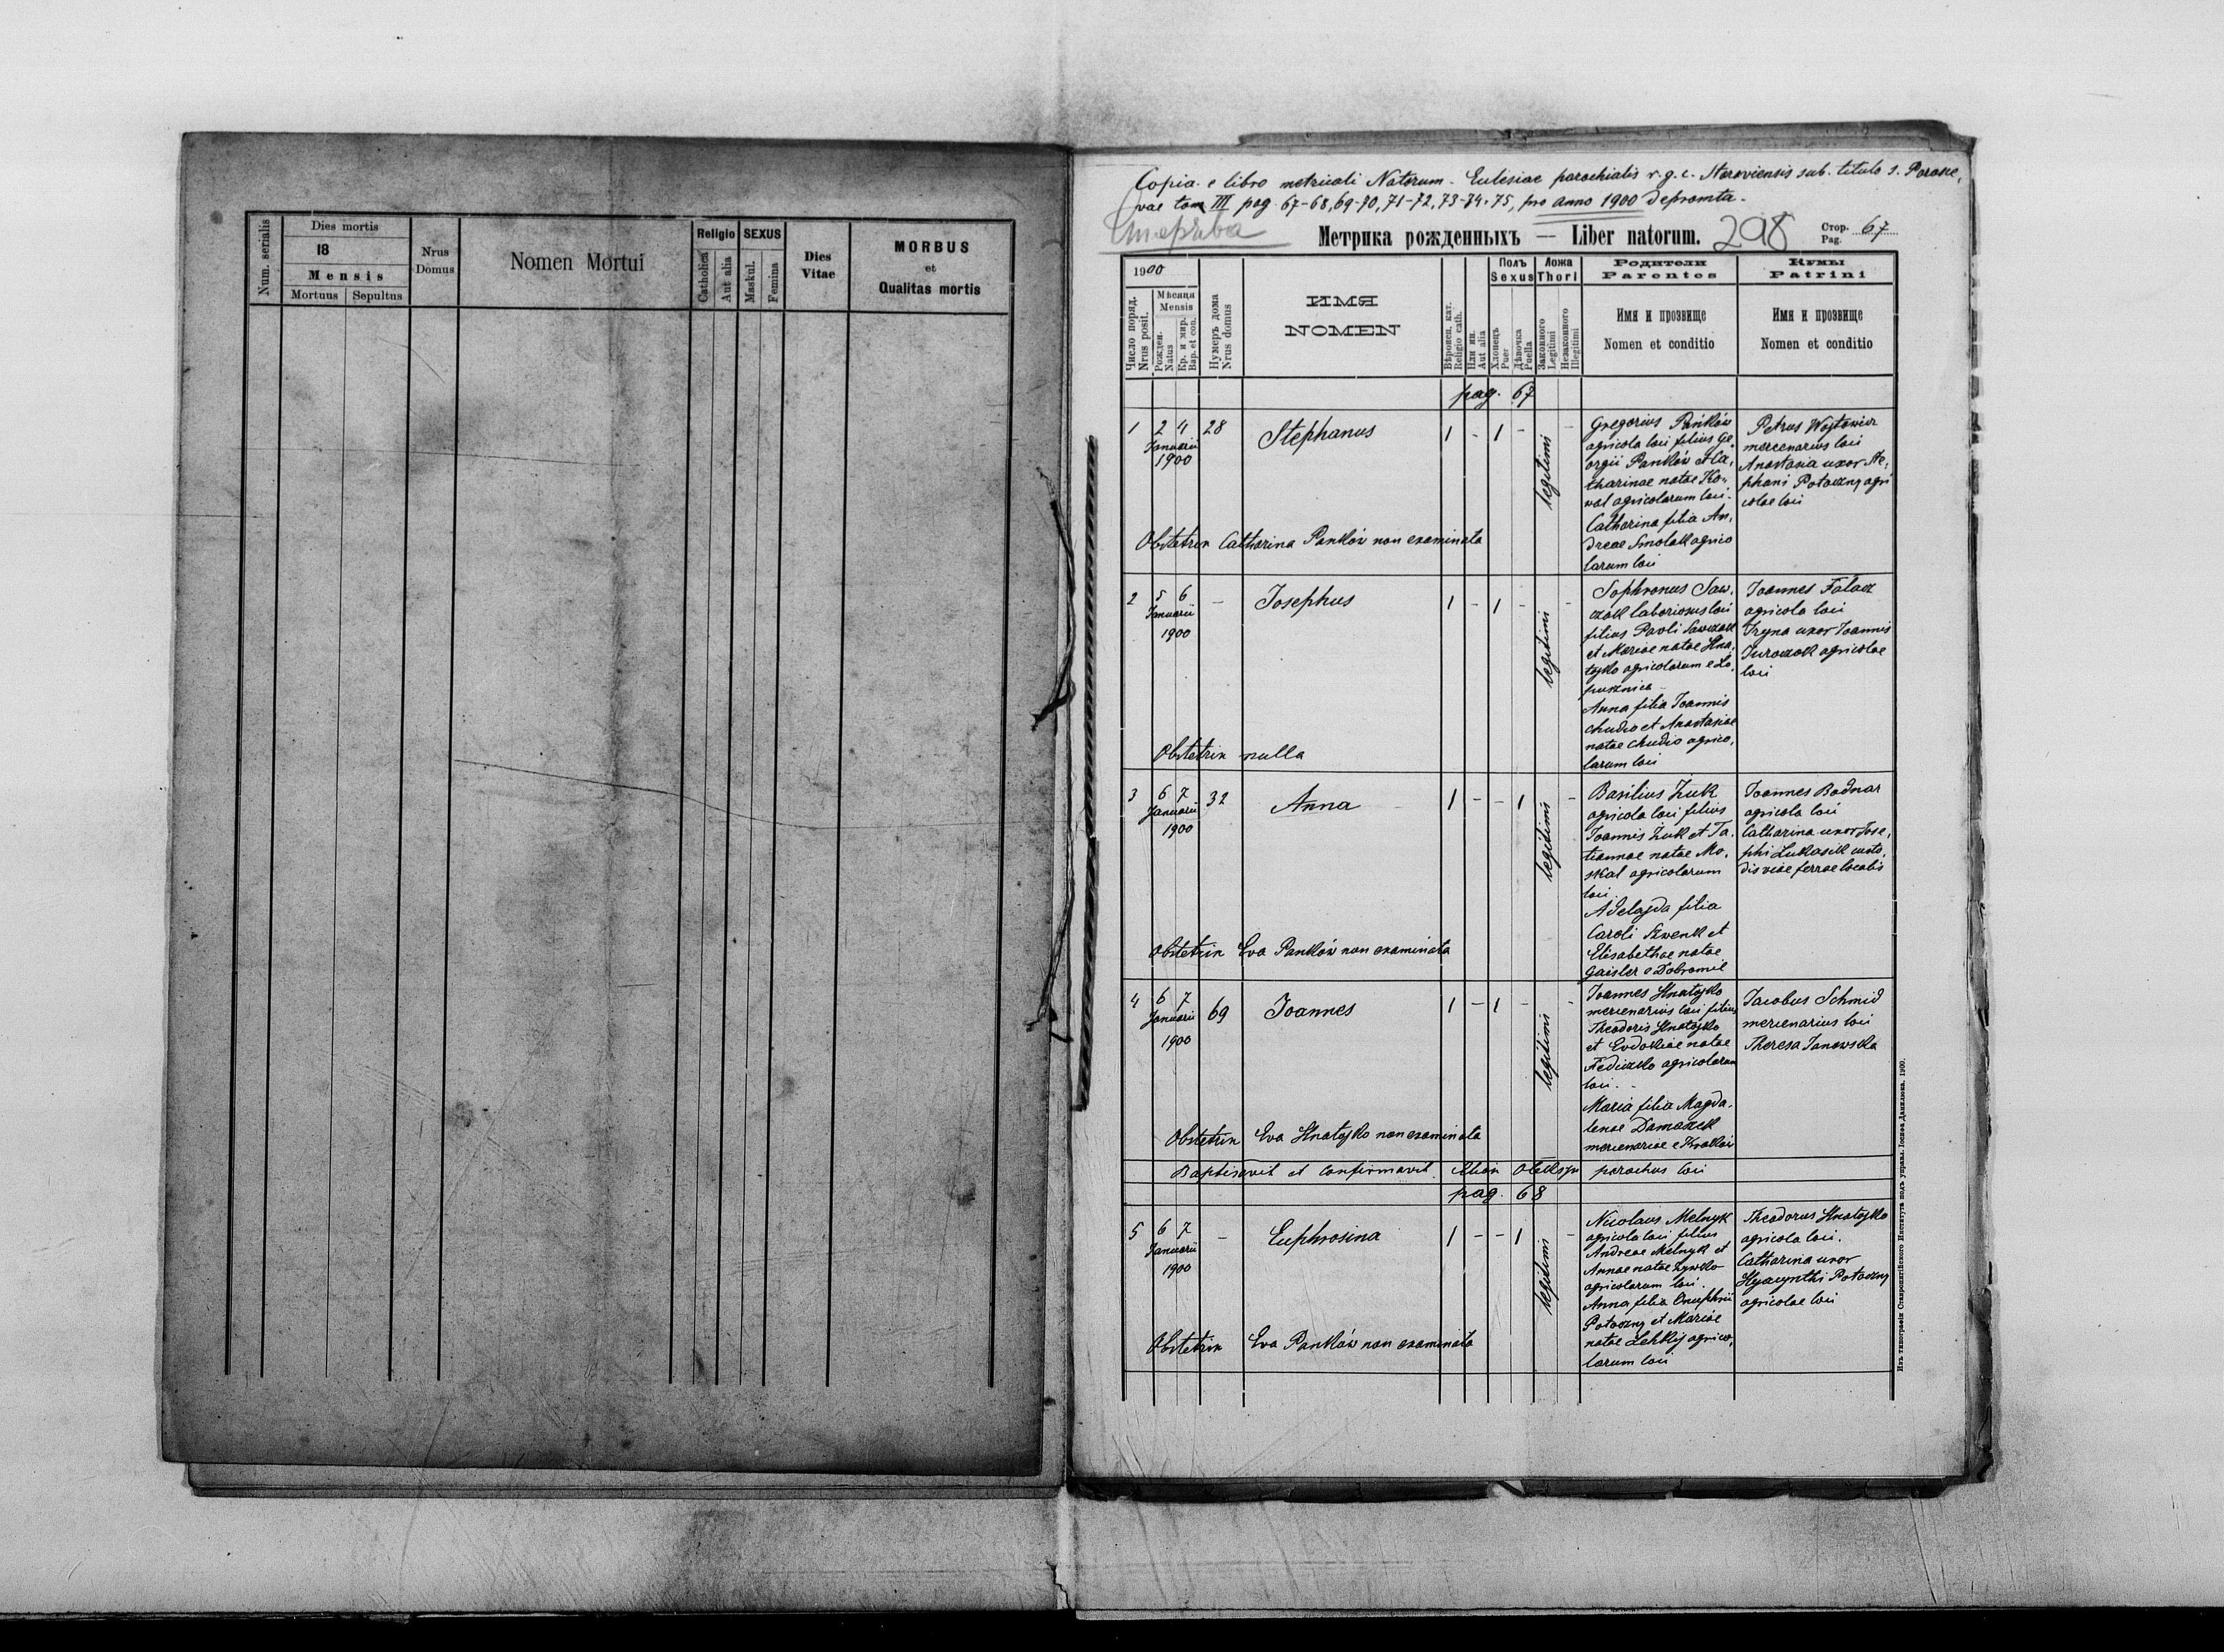 Num. serialis
Dies mortis
18
Mensis
Mortuus Sepultus
Nrus Domus
Nomen Mortui
Religio
Catholica
Aut alia
SEXUS
Maskul.
Femina
Dies Vitae
MORBUS
et
Qualitas mortis
Copia e libro metricali Natorum Eclesiae parochialis r.g.c. Steroviensis sub. titulo s. Paraske,
vae tom III pag. 67-68, 69-70, 71-72, 73-74-75, pro anno 1900 depromta.
Метрика рожденныхъ — Liber natorum. 298
Стор. Pag. 67
1900
Число поряд.
Nrus posit.
Мѣсяца
Mensis
Рожден.
Natus
Кр. и мир.
Bap. et con.
Нумеръ дома
Nrus domus
ИМЯ
NOMEN
Вѣроисп. кат.
Religio cath.
Или ин.
Aut alia
Полъ
Sexus
Хлопецъ
Puer
Дѣвочка
Puella
Ложа
Thori
Законного
Legitimi
Незаконного
Illegitimi
Родители
Parentes
Имя и прозвище
Nomen et conditio
Кумы
Patrini
Имя и прозвище
Nomen et conditio
pag. 67
1 2 4 28 Stephanus 1 - 1 - legitimi -
Januarii
1900
Gregorius Pańków
agricola loci filius Ge,
orgii Pańków et Ca,
tharinae natae Ko,
wal agricolarum loci.
Catharina filia An,
dreae Smolak agrico
larum loci
Petrus Wojtowicz
mercenarius loci
Anastasia uxor Ste,
phani Potoczny agri
colae loci
Obstetrix Catharina Pańków non examinata
2 5 6 - Josephus 1 - 1 - legitimi -
Januarii
1900
Sophronus Saw,
czak laboriosus loci
filius Pauli Sawczak
et Mariae natae Hna,
tyjko agricolarum e Ło,
pusznica
Anna filia Joannis
Chudio et Anastasiae
natae Chudio agrico,
larum loci
Joannes Falacz
agricola loci
Iryna uxor Joannis
Juraczak agricolae
loci
Obstetrix nulla
3 6 7 32 Anna 1 - - 1 legitimi -
Januarii
1900
Basilius Żuk
agricola loci filius
Joannis Żuk et Ta,
tiannae natae Mo,
skal agricolarum
loci.
Adelajda filia
Caroli Szwenk et
Elisabethae natae
Gaisler e Dobromil
Joannes Bodnar
agricola loci
Catharina uxor Jose,
phi Łukasik custo,
dis viae ferrae localis
Obstetrix Eva Pańków non examinata
4 6 7 69 Joannes 1 - 1 - legitimi -
Januarii
1900
Joannes Hnatyjko
mercenarius loci filius
Theodoris Hnatyjko
et Evdokiae natae
Fediczko agricolarum
loci.
Maria filia Magda,
lenae Damaszek
mercenariae e Kraków
Jacobus Schmid
mercenarius loci
Theresa Janowska
Obstetrix Eva Hnatyjko non examinata
Baptisavit et confirmavit Elias parochus loci
pag. 68
5 6 7 - Euphrosina 1 - - 1 legitimi -
Januarii
1900
Nicolaus Melnyk
agricola loci filius
Andreae Melnyk et
Annae natae Żywko
agricolarum loci.
Anna filia Onuphrii
Potoczny et Mariae
natae Lehkij agrico,
larum loci
Theodorus Hnatyjko
agricola loci.
Catharina uxor
Hyacynthi Potoczny
agricolae loci
Obstetrix Eva Pańków non examinata
Изъ типографіи Ставропигійского Института подъ управл. Іосифа Данилюка. 1900.